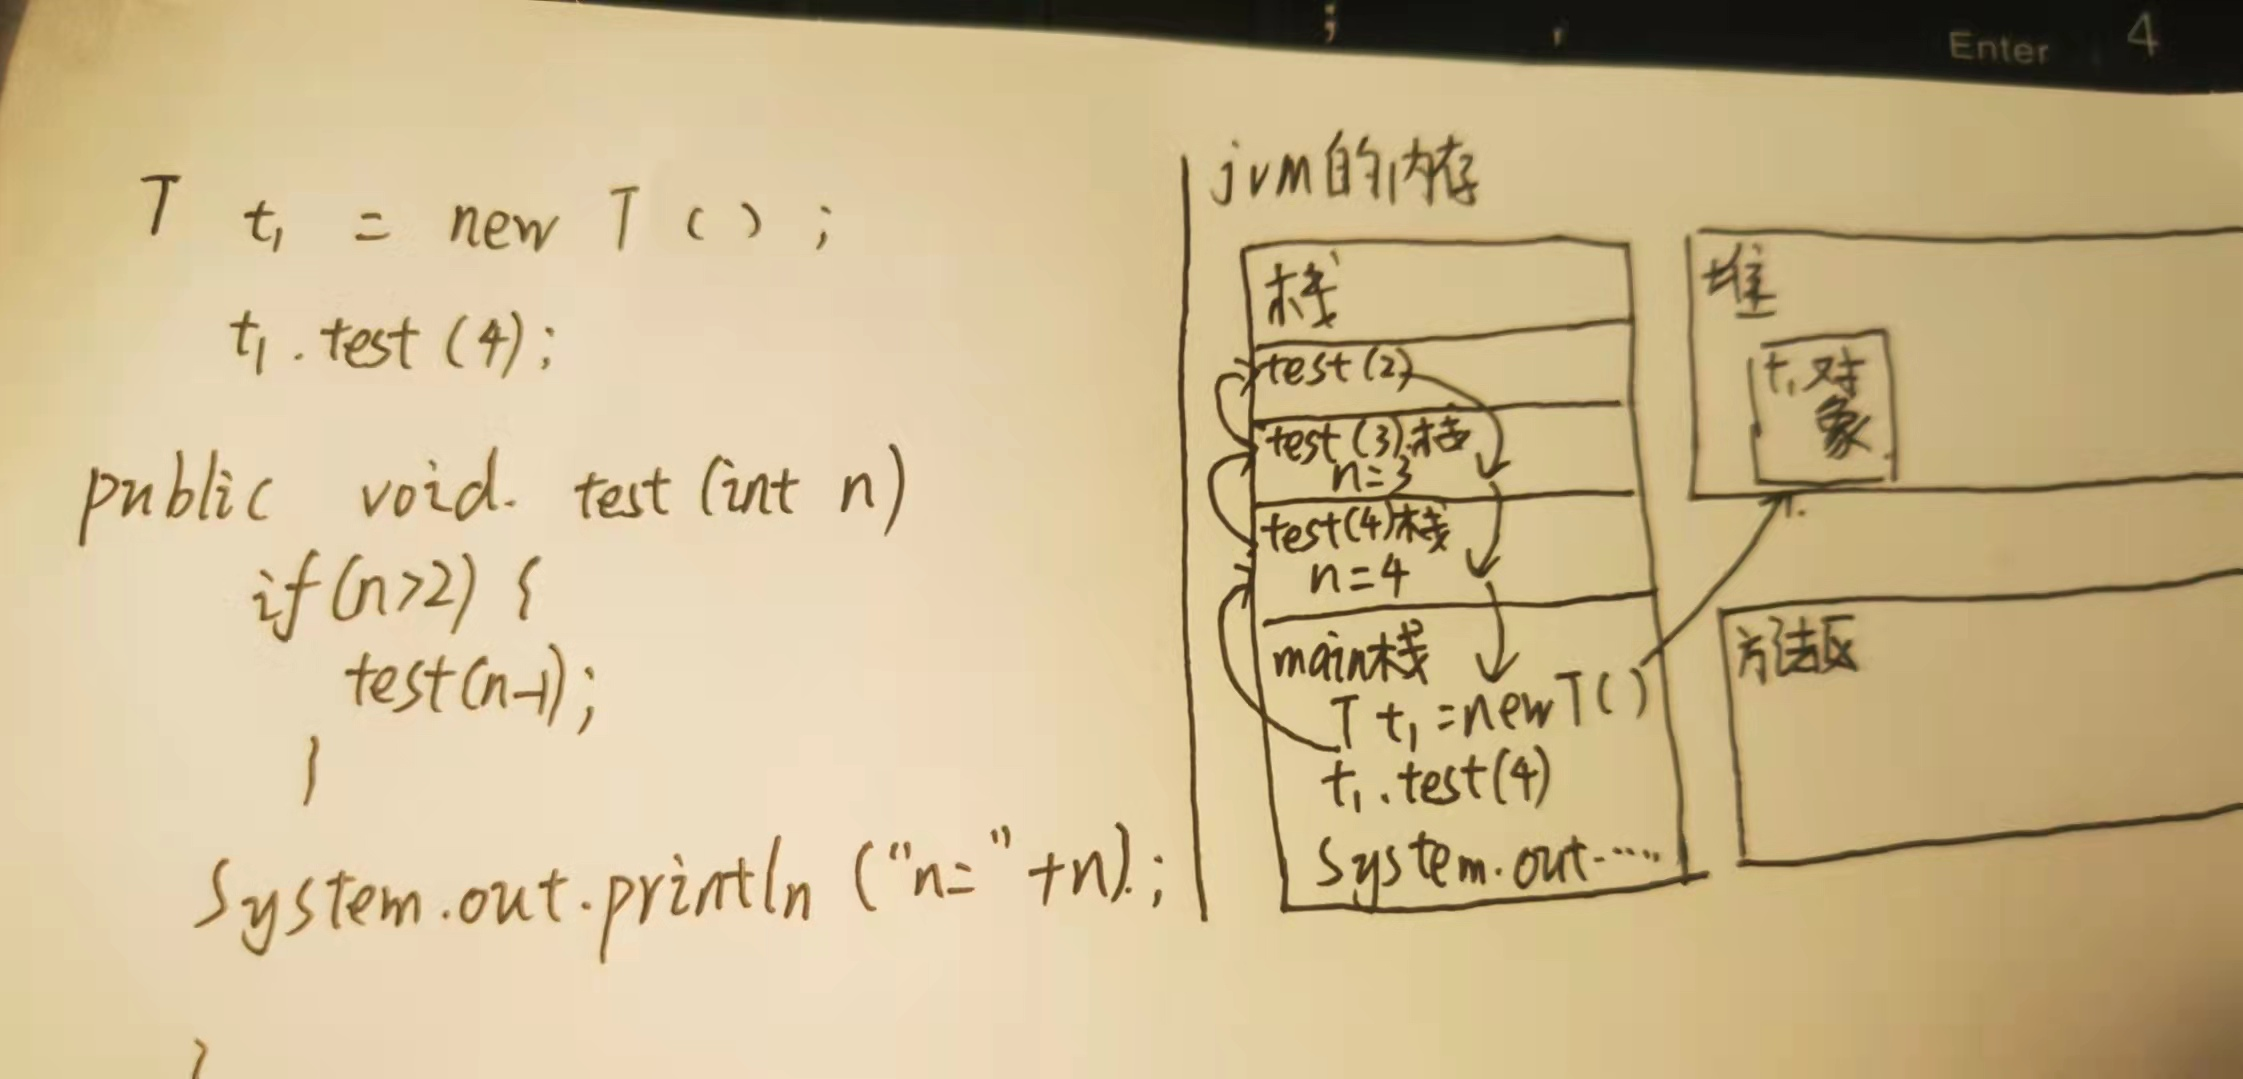 ; , Enter 4
T t₁ = new T ( ) ;
t₁ . test (4) ;
public void. test (int n)
if (n>2) {
test(n-1);
}
System.out.println ("n="+n).;
}
jvm的内存
栈
test (2)
test (3).栈
n=3
test(4)栈
n=4
main栈
T t₁ =new T( )
t₁ .test(4)
System.out.....
堆
t₁对
象
方法区